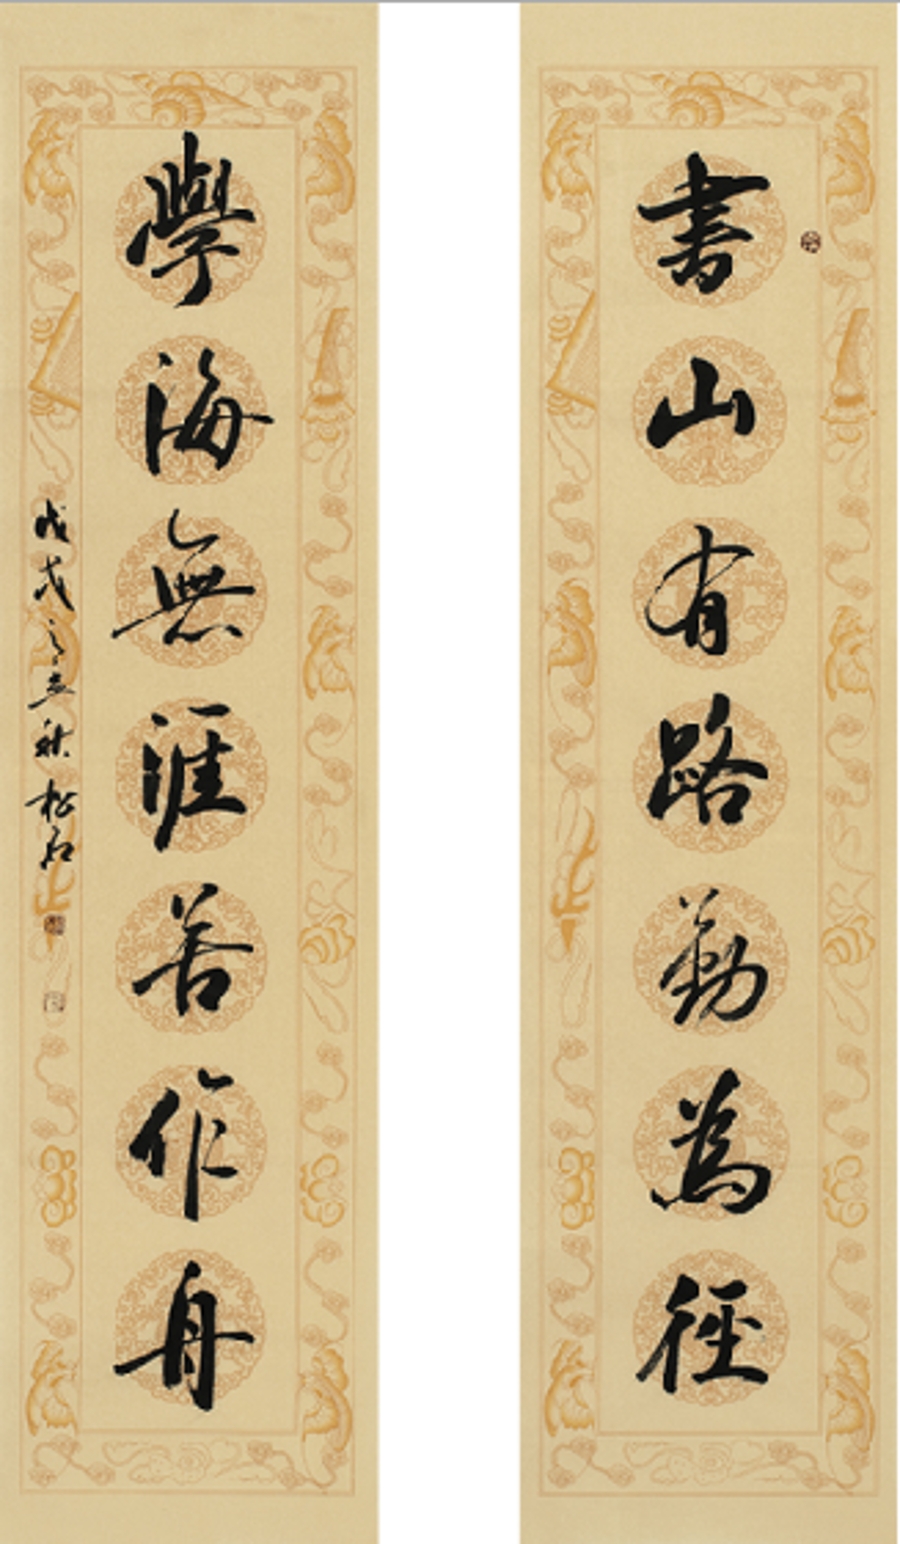 書山有路勤為徑
學海無涯苦作舟
戊戌之立秋松石